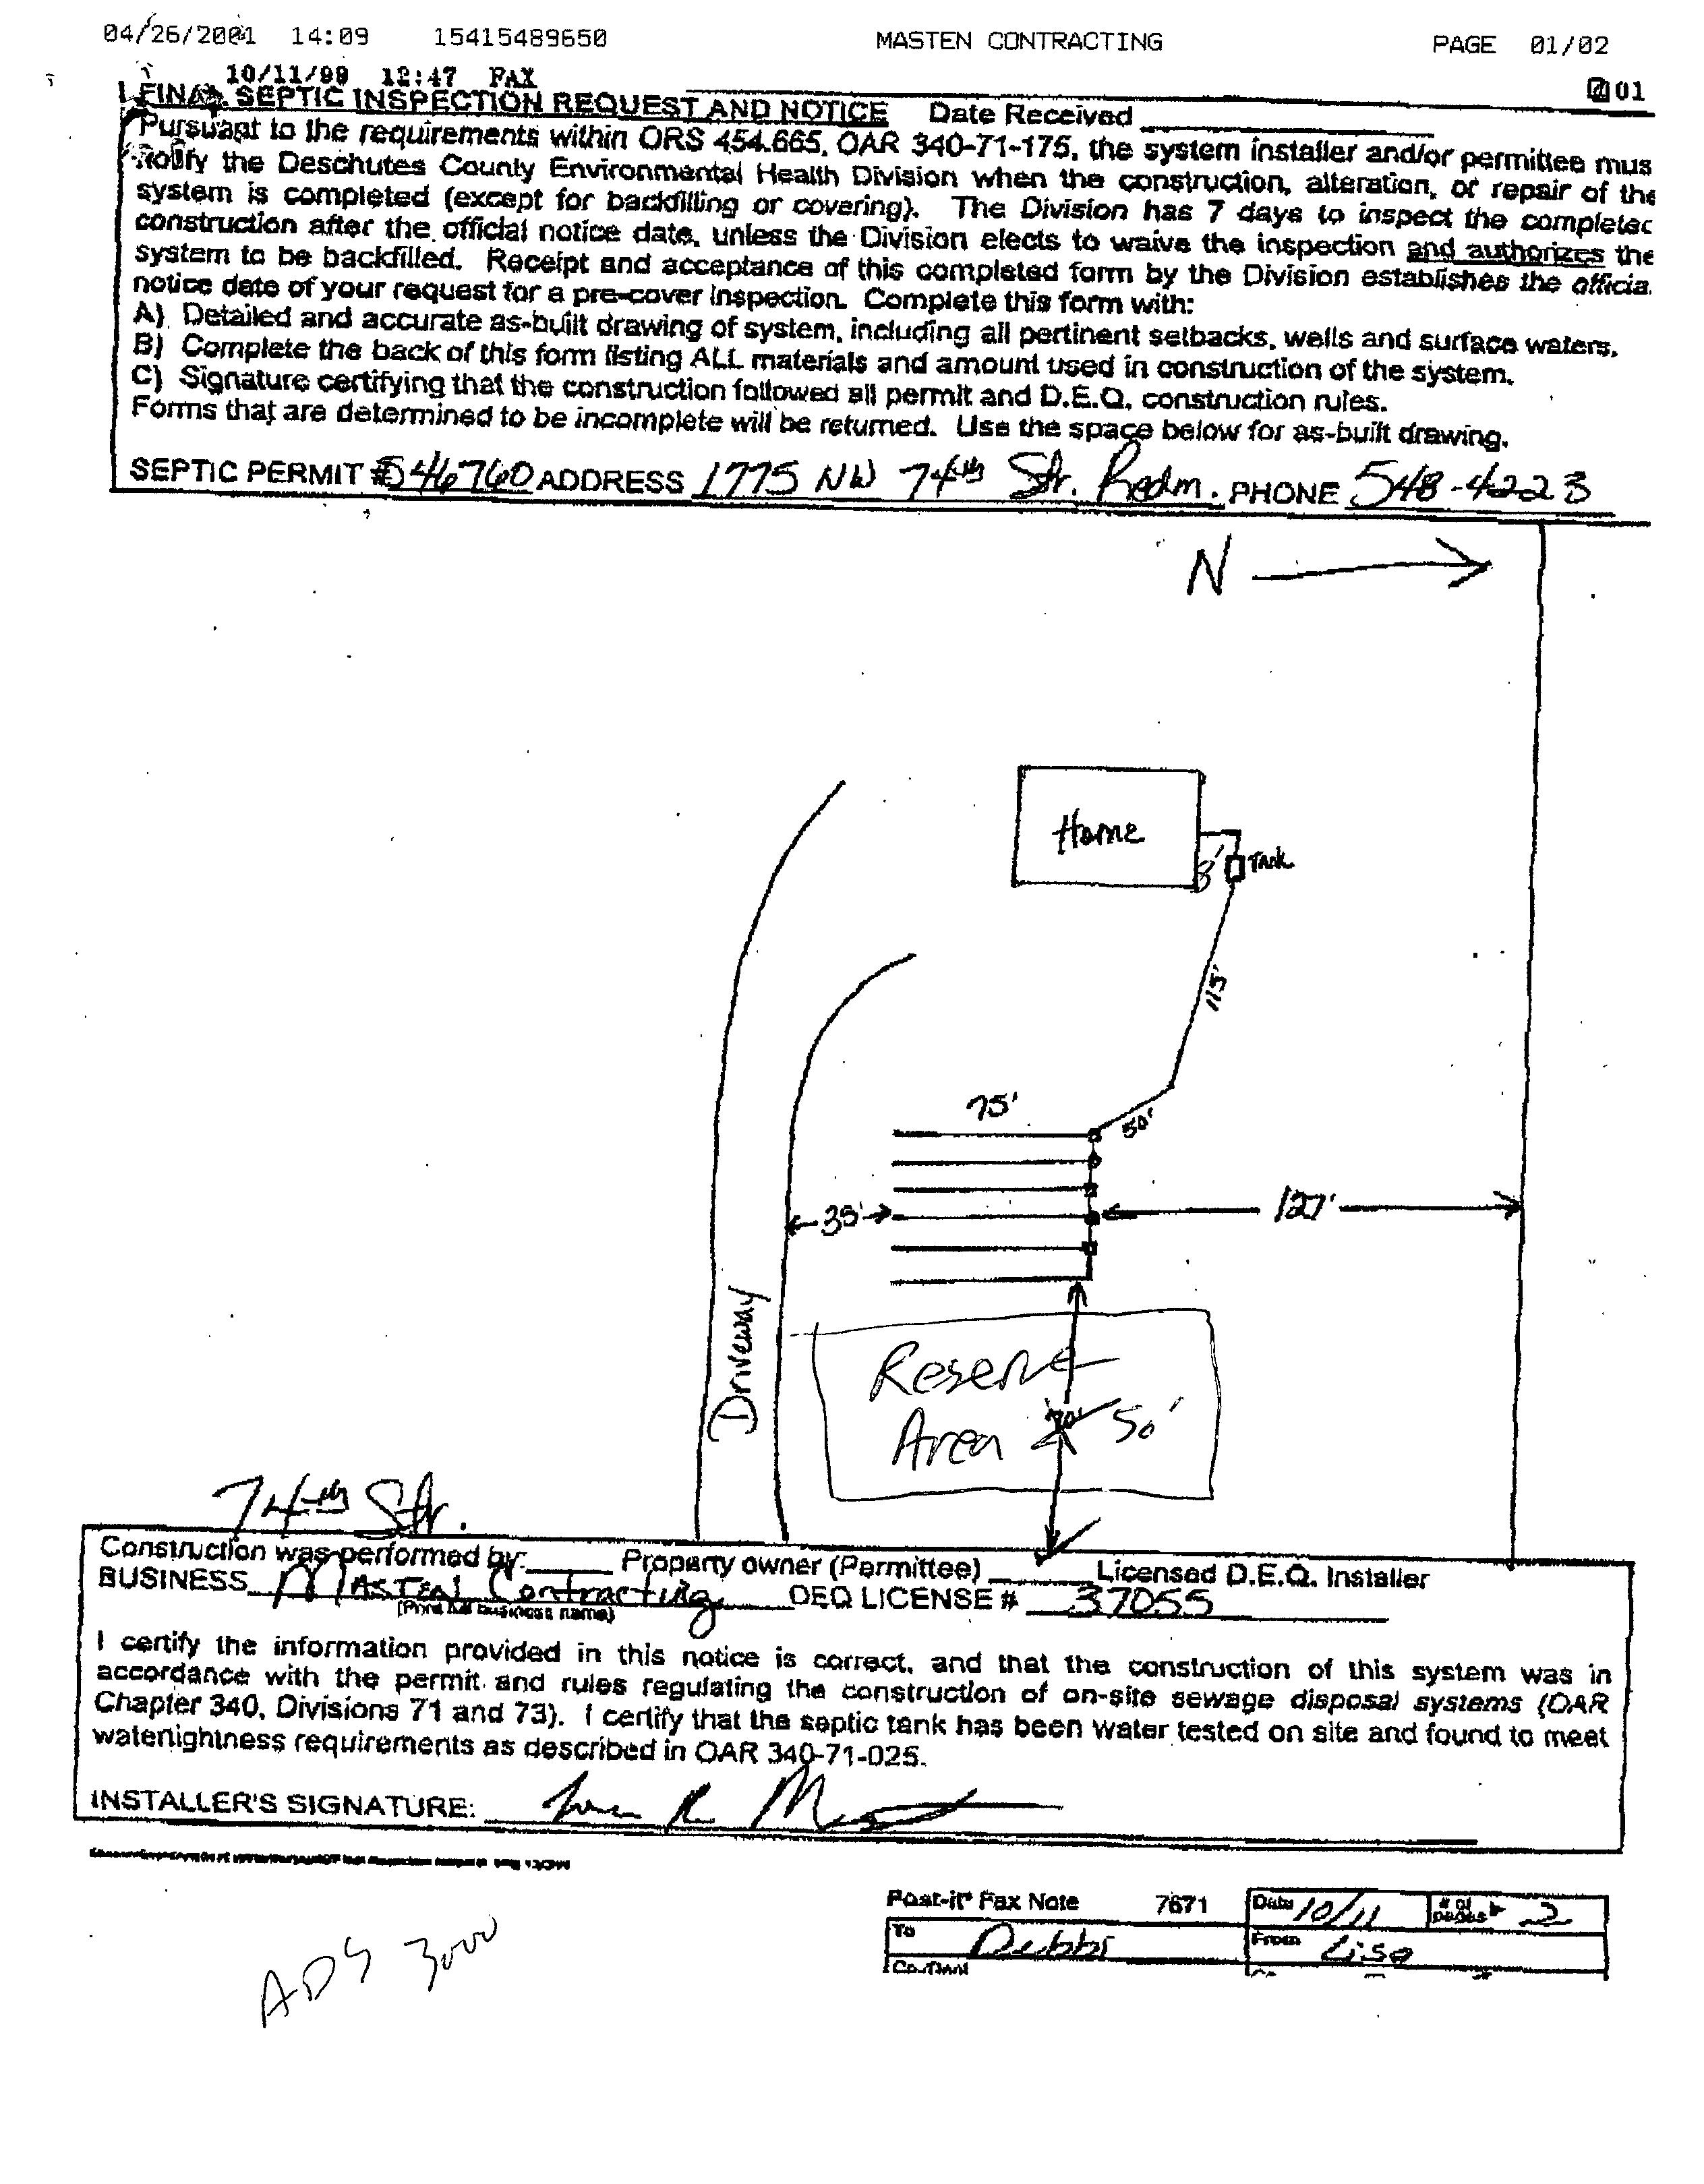 04/26/2001 14:09 15415489650 MASTEN CONTRACTING PAGE 01/02
10/11/99 12:47 FAX 01
FINAL SEPTIC INSPECTION REQUEST AND NOTICE Date Received
Pursuant to the requirements within ORS 454.665, OAR 340-71-175, the system installer and/or permittee mus
Notify the Deschutes County Environmental Health Division when the construction, alteration, or repair of the
system is completed (except for backfilling or covering). The Division has 7 days to inspect the completec
construction after the official notice date, unless the Division elects to waive the inspection and authorizes the
system to be backfilled. Receipt and acceptance of this completed form by the Division establishes the officia
notice date of your request for a pre-cover inspection. Complete this form with:
A) Detailed and accurate as-built drawing of system, including all pertinent setbacks, wells and surface waters.
B) Complete the back of this form listing ALL materials and amount used in construction of the system.
C) Signature certifying that the construction followed all permit and D.E.Q. construction rules.
Forms that are determined to be incomplete will be returned. Use the space below for as-built drawing.
SEPTIC PERMIT #S46760 ADDRESS 1775 NW 74th Str. Redm. PHONE 548-4223
N
Home
8' Tank
115'
75'
50'
35'
127'
Driveway
Reserve
Area 50'
74th Str.
Construction was performed by: Property owner (Permittee) Licensed D.E.Q. Installer
BUSINESS Masten Contracting DEQ LICENSE # 37055
(Print full business name)
I certify the information provided in this notice is correct, and that the construction of this system was in
accordance with the permit and rules regulating the construction of on-site sewage disposal systems (OAR
Chapter 340, Divisions 71 and 73). I certify that the septic tank has been water tested on site and found to meet
watertightness requirements as described in OAR 340-71-025.
INSTALLER'S SIGNATURE:
Post-it Fax Note 7671 Date 10/11 # of pages 2
To Debbi From Lisa
Co./Dept
ADS 3000